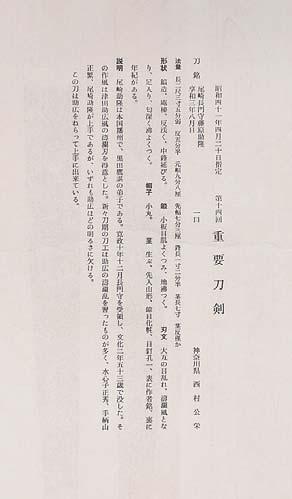 昭和四十一年四月二十日指定　第十四回　重要刀剣
刀　銘　尾崎長門守藤原助隆
享和三年八月日　一口　神奈川県　西村公栄
法量　長二尺三寸五分弱　反五分半　元幅九分八厘　先幅七分三厘　鋒長一寸二分半　茎長七寸　茎反僅か
形状　鎬造、庵棟、反浅く、中鋒延びる。　鍛　小板目肌よくつみ、地沸つく。　刃文　大互の目乱れ、濤瀾風とな
り、足入り、匂深く沸よくつく。　帽子　小丸。　茎　生ぶ、先入山形、鑢目化粧、目釘孔一、表に作者銘、裏に
年紀がある。
説明　尾崎助隆は本国播州で、黒田鷹諶の弟子である。寛政十年十二月長門守を受領し、文化二年五十三歳で没した。そ
の作風は津田助広風の濤瀾刃を得意とした。新々刀期の刀工は助広の濤瀾乱を習ったものが多く、水心子正秀、手柄山
正繁、尾崎助隆が上手であるが、いずれも助広ほどの明るさに欠ける。
この刀は助広をねらって上手に出来ている。